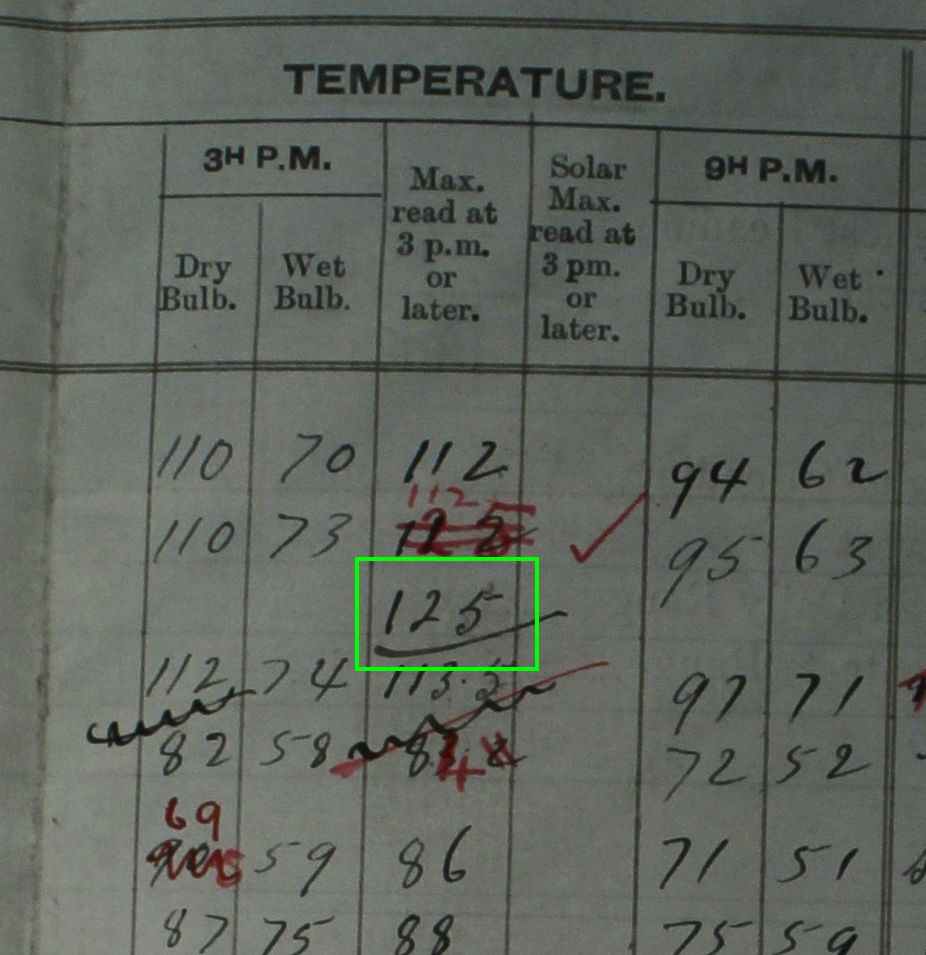 TEMPERATURE.
3H P.M.
Max. read at 3 p.m. or later.
Solar Max. read at 3 pm. or later.
9H P.M.
Dry Bulb.
Wet Bulb.
Dry Bulb.
Wet Bulb.
110 70 112 94 62
112
110 73 95 63
125
112 74 113.5 97 71
82 58 72 52
69
59 86 71 51
87 75 88 75 59